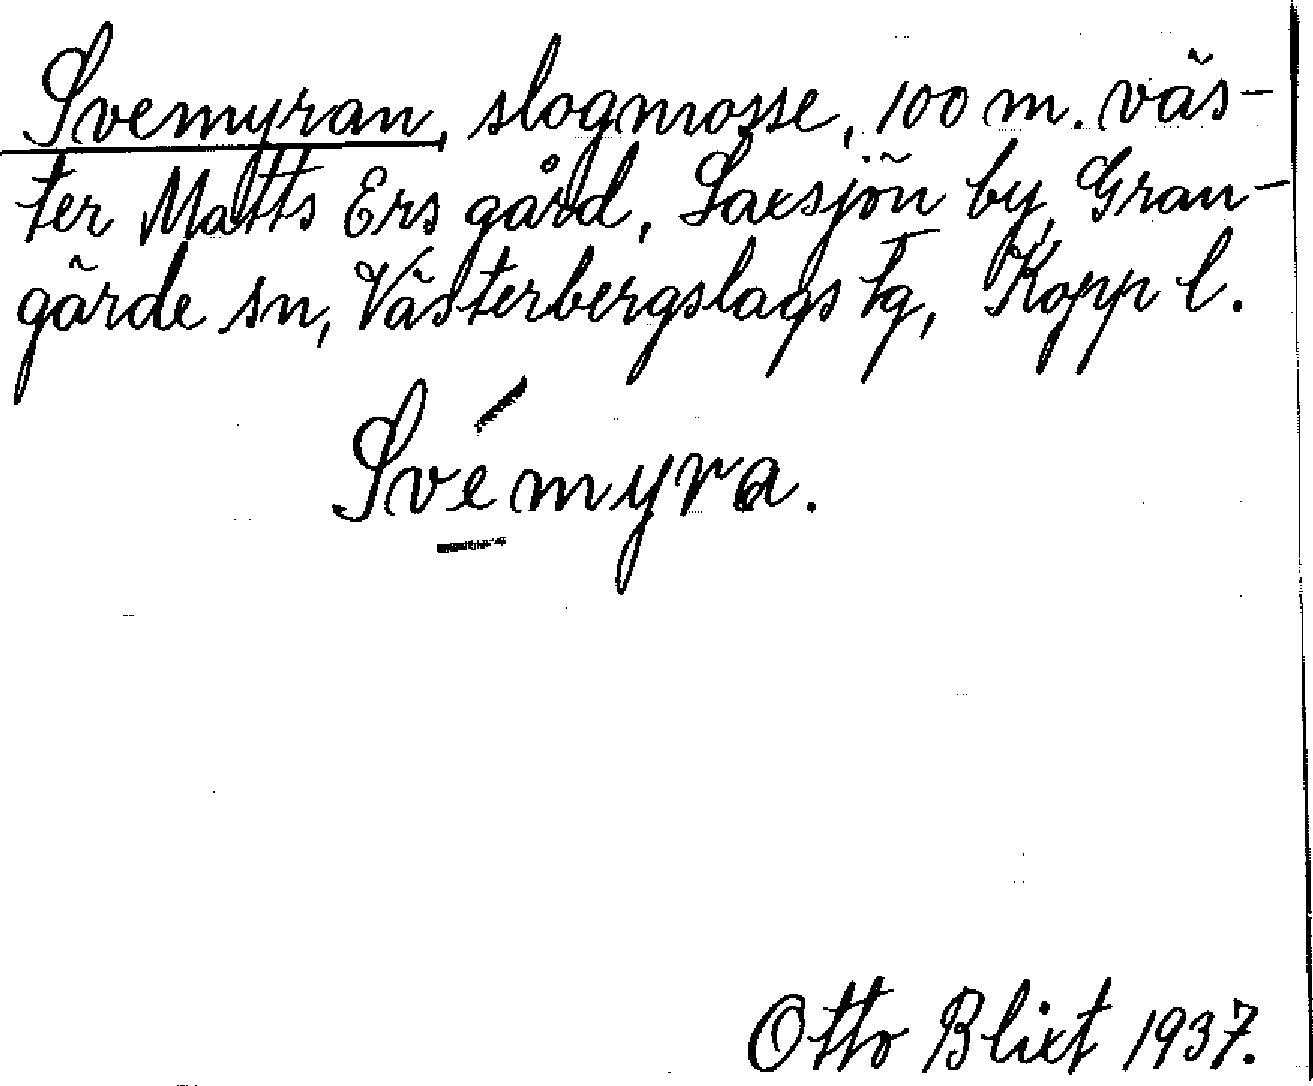 Svemyran, slogmosse, 100 m. väs-
ter Matts Ers gård, Laxsjön by, Gran-
gärde sn, Västerbergslags tg, Kopp l.
Své myra.
Otto Blixt 1937.